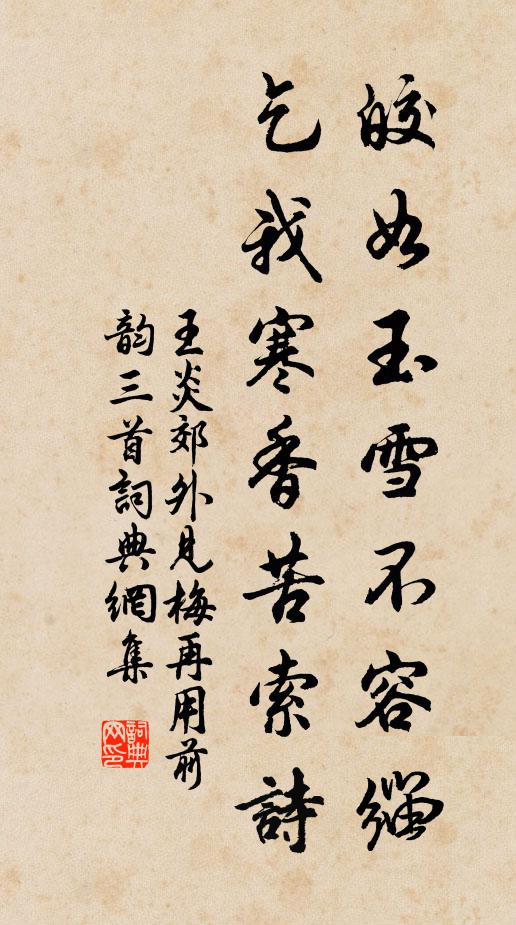 皎如玉雪不容緇
乞我寒香苦索詩
王炎郊外見梅再用前
韵三首詞典網集
詞典網印